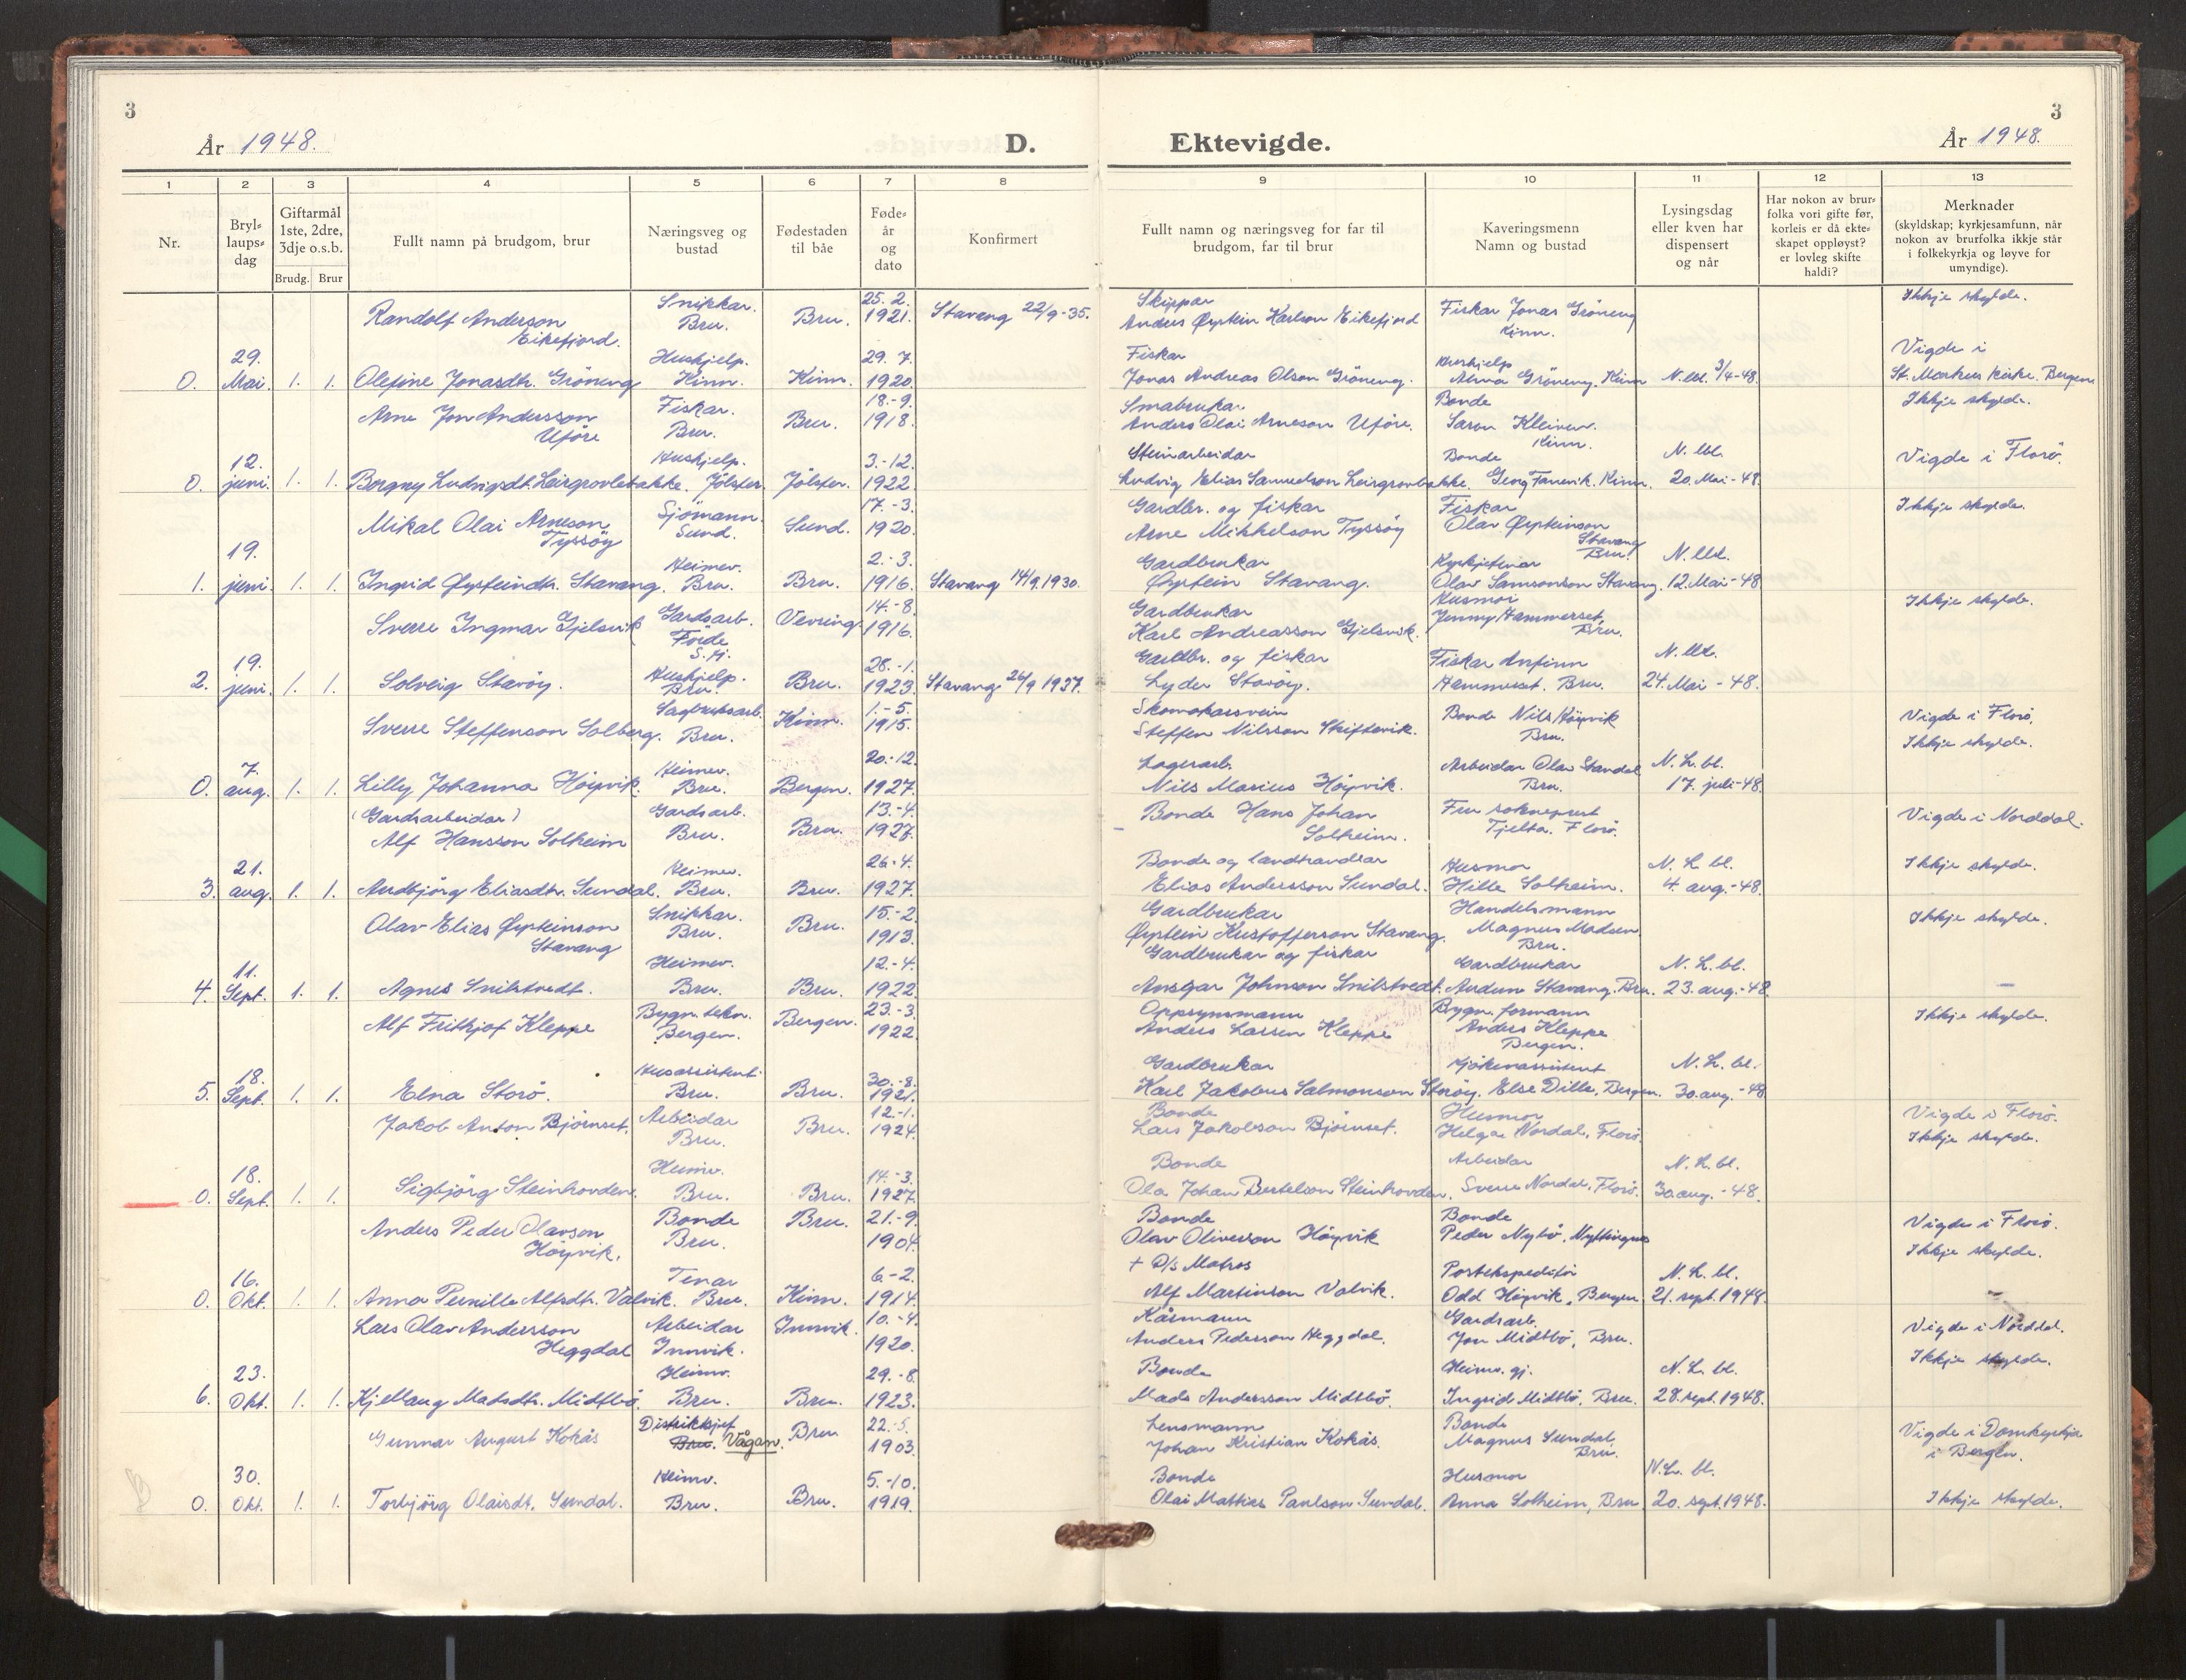 3
År 1948.
D.
1 2 3 4 5 6 7 8
Nr.
Bryl-laups-dag
Giftarmål 1ste, 2dre, 3dje o.s.b.
Brudg. Brur
Fullt namn på brudgom, brur
Næringsveg og bustad
Fødestaden til båe
Føde-år og dato
Konfirmert
Randolf Anderson Eikefjord. Snikkar. Bru. Bru. 25. 2. 1921. Stavang 22/9-35.
0. 29. Mai. 1. 1. Olefine Jonasdtr. Gröneng Hushjelp. Kinn. Kinn. 29. 7. 1920.
Arne Jon Andersson Uföre Fiskar. Bru. Bru. 18.-9. 1918.
0. 12. juni. 1. 1. Borgny Ludvigsdt. Leirgrovlebakke. Hushjelp. Jölster. Jölster. 3.-12. 1922.
Mikal Olai Arneson Tyssöy Sjömann. Sund. Sund. 17.-3. 1920.
1. 19. juni. 1. 1. Ingrid Øysteindtr. Stavang. Heimev. Bru. Bru. 2.-3. 1916. Stavang 14/9 1930.
Sverre Ingmar Gjelsvik Gardsarb. Förde S.fj. Vevring 14.-8. 1916.
2. 19. juni. 1. 1. Solveig Stavöy. Hushjelp. Bru. Bru. 28.-1. 1923. Stavang 26/9 1937.
Sverre Steffenson Solberg. Sagbruksarb. Bru. Kinn. 1.-5. 1915.
0. 7. aug. 1. 1. Lilly Johanna Höyvik. Heimev. Bru. Bergen. 20.-12. 1927.
(Gardsarbeidar) Alf Hansson Solheim Gardsarb. Bru. Bru. 13.-4. 1927.
3. 21. aug. 1. 1. Audbjörg Eliasdtr. Sundal. Heimev. Bru. Bru. 26.-4. 1927.
Olav Elias Øysteinson Stavang Snikkar. Bru. Bru. 15.-2. 1913.
4. 11. Sept. 1. 1. Agnes Snilstvedt. Heimev. Bru. Bru. 12.-4. 1922.
Alf Frithjof Kleppe Bygn. tekn. Bergen. Bergen. 23.-3. 1922.
5. 18. Sept. 1. 1. Elna Storö. Husassistent. Bru. Bru. 30.-8. 1921.
Jakob Anton Björnset. Arbeidar Bru. Bru. 12.-1. 1924.
0. 18. Sept. 1. 1. Sigbjörg Steinhovden. Heimv. Bru. Bru. 14.-3. 1927.
Anders Peder Olavson Höyvik. Bonde Bru. Bru. 21.-9. 1904.
0. 16. Okt. 1. 1. Anna Pernille Alfsdtr. Valvik. Tenar Bru. Kinn. 6.-2. 1914.
Lars Olav Andersson Heggdal Arbeidar Innvik. Innvik. 10.-4. 1920.
6. 23. Okt. 1. 1. Kjellaug Madsdtr. Midtbö. Heimv. Bru. Bru. 29.-8. 1923.
Gunnar August Kokås Distriktsjef Bru. Vågan. Bru 22.-5. 1903.
0. 30. Okt. 1. 1. Torbjörg Olaisdt. Sundal. Heimv. Bru. Bru. 5.-10. 1919.
3
Ektevigde.
År 1948.
9 10 11 12 13
Fullt namn og næringsveg for far til brudgom, far til brur
Kaveringsmenn Namn og bustad
Lysingsdag eller kven har dispensert og når
Har nokon av brur-folka vori gifte før, korleis er då ekte-skapet oppløyst? er lovleg skifte haldi?
Merknader (skyldskap; kyrkjesamfunn, når nokon av brurfolka ikkje står i folkekyrkja og løyve for umyndige).
Skippar Anders Øystein Karlson Eikefjord Fiskar Jonas Gröneng Kinn. Ikkje skylde.
Fiskar Jonas Andreas Olson Gröneng. Hushjelp Alma Gröneng, Kinn N.lbl. 3/4-48. Vigde i St. Markus kirke. Bergen
Småbrukar. Anders Olai Arneson Uföre. Bonde Saron Kleiven. Kinn. Ikkje skylde.
Steinarbeidar Ludvig Elias Samuelson Leirgrovbakke. Bonde Georg Fanevik. Kinn. N. lbl. 20. Mai-48. Vigde i Florö.
Gardbr. og fiskar Arne Mikkelson Tyssöy Fiskar Olav Øysteinson Stavang Bru. Ikkje skylde.
Gardbrukar Øystein Stavang. Kyrkjetenar Olav Samsonson Stavang. N. lbl. 12. Mai-48
Gardbrukar Karl Andreasson Gjelsvik. Husmor Jenny Hammerset, Bru. Ikkje skylde.
Gardbr. og fiskar Lyder Stavöy. Fiskar Anfinn Hammerset. Bru. N. lbl. 24. Mai-48.
Skomakarsvein Steffen Nilsson Skiftesvik. Bonde Nils Höyvik Bru. Vigde i Florö. Ikkje skylde.
Lagerarb. Nils Marius Höyvik. Arbeidar Olav Standal Bru. N. L. bl. 17. juli-48.
Bonde Hans Johan Solheim. Fru sokneprest Tjelta. Florö. Vigde i Norddal.
Bonde og landhandlar Elias Andersson Sundal. Husmor Hille Solheim. N. L. bl. 4. aug.-48. Ikkje skylde.
Gardbrukar Øystein Kristofferson Stavang. Handelsmann Magnus Madsen Bru. Ikkje skylde.
Gardbrukar og fiskar Ansgar Johnson Snilstvedt. Gardbrukar Audun Stavang. Bru. N. L. bl. 23. aug.-48.
Oppsynsmann Anders Larsen Kleppe Bygn. formann Anders Kleppe Bergen. Ikkje skylde.
Gardbrukar Karl Jakobus Salmonson Storöy. Kjökenassistent Else Dille, Bergen. N. L. bl. 30. aug.-48
Bonde Lars Jakobson Björnset. Husmor Helga Nordal, Florö. Vigde i Florö. Ikkje skylde.
Bonde Ola Johan Bertelson Steinhovden. Arbeidar Sverre Nordal, Florö. N. L. bl. 30. aug.-48.
Bonde Olav Oliverson Höyvik Bonde Peder Nybö, Nyttingnes Vigde i Florö. Ikkje skylde.
+ D/s Matros Alf Martinson Valvik. Postekspeditör Odd Höyvik, Bergen N. L. bl. 21. sept. 1948.
Kårmann Anders Pederson Heggdal. Gardsarb. Jon Midtbö, Bru. Vigde i Norddal. Ikkje skylde.
Bonde Mads Andersson Midtbö. Heimv. gj. Ingrid Midtbö, Bru. N. L. bl. 28. sept. 1948.
Lensmann Johan Kristian Kokås. Bonde Magnus Sundal Bru. Vigde i Domkyrkja i Bergen.
Bonde Olai Mattias Paulson Sundal. Husmor Anna Solheim, Bru N. L. bl. 20. sept. 1948. Ikkje skylde.